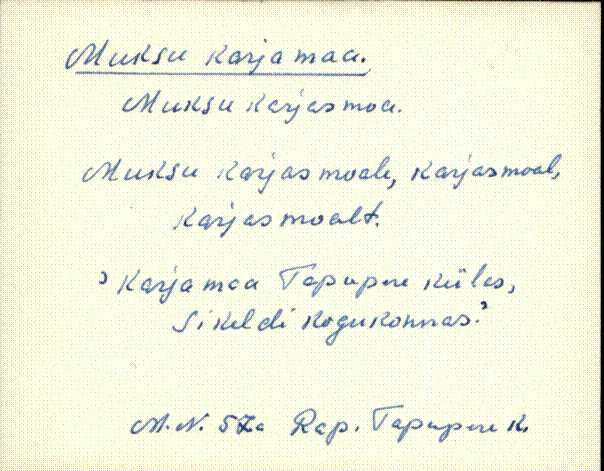 Muksu karjamaa.
Muksu karjasmoa.
Muksu karjasmoale, karjasmoal,
karjasmoalt.
'Karjamaa Tapupere külas,
Sikeldi kogukonnas.'
A.N. 57a Rap. Tapupere k.